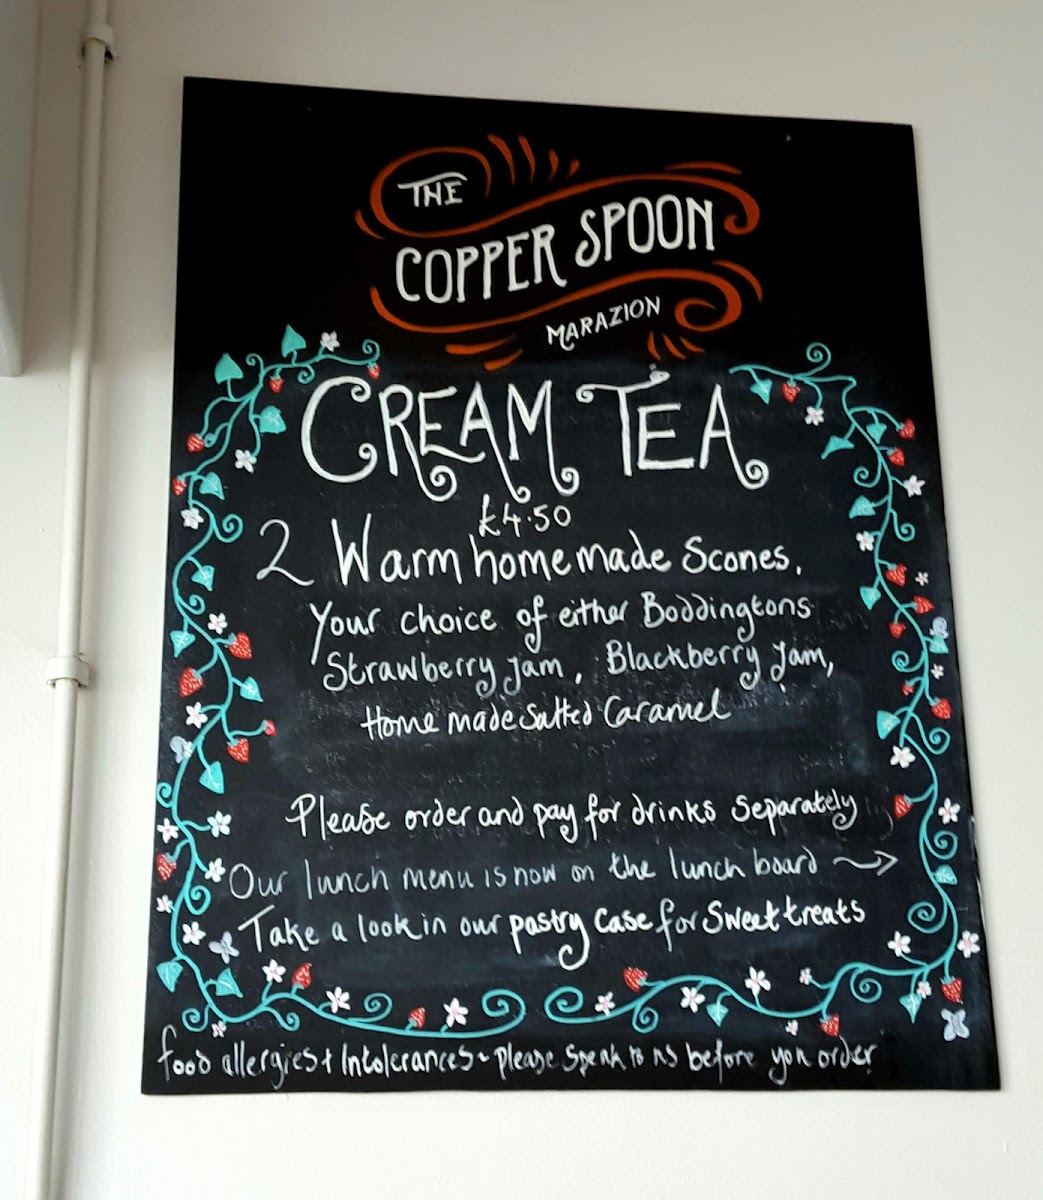 THE
COPPER SPOON
MARAZION
CREAM TEA
£4.50
2 Warm home made Scones.
Your choice of either Boddingtons
Strawberry jam, Blackberry Jam,
Home made Salted Caramel
Please order and pay for drinks separately
Our lunch menu is now on the lunch board →
Take a look in our pastry case for Sweet treats
food allergies + Intolerances ~ please speak to us before you order